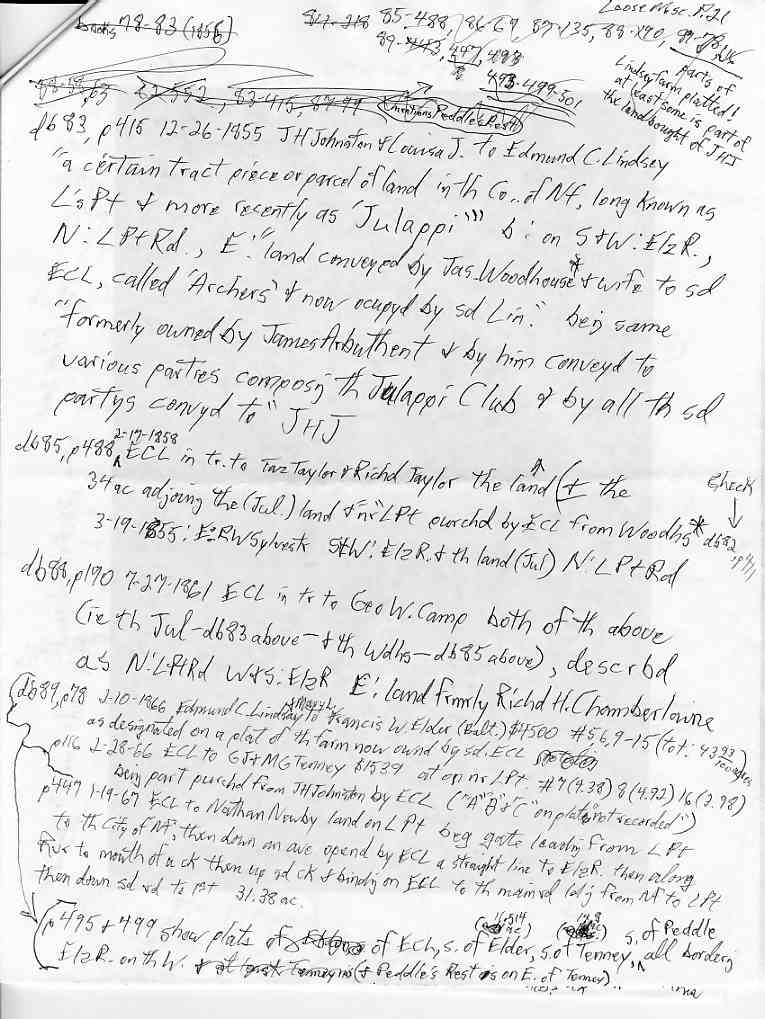 Loose Misc. P. 21
books 78-83 (1856)
84-218 85-488, 86-69, 87-135, 88-190, 89-78,116
89-443, 447, 493
493-499-501
parts of
Lindsey farm platted!
at least some is part of
the land bought of JHJ
83-415, 87-99 (mentions Peddle's Rest)
db83, p415 12-26-1855 JH Johnston & Louisa J. to Edmund C. Lindsey
"a certain tract piece or parcel of land in th Co. of Nf, long known as
L's Pt & more recently as 'Julappi'" b: on S & W: ElzR.,
N: LPtRd., E: "land conveyed by Jas. Woodhouse* & wife to sd
ECL, called 'Archers' & now ocupyd by sd Lin." beig same
"formerly owned by James Arbuthent & by him conveyd to
various parties composg th Julappi Club & by all th sd
partys convyd to" JHJ
db85, p488 2-17-1858 ECL in tr. to Taz Taylor & Richd Taylor the land (& the
34ac adjoing the (Jul.) land & nr LPt purchd by ECL from Woodhs*
check
db82, p411
3-19-1855: E: RW Sylvestr S&W: ElzR. & th land (Jul) N: LPtRd
db88, p190 7-27-1861 ECL in tr to Geo W. Camp both of th above
(ie th Jul-db83 above- & th Wdhs-db85 above), describd
as N: LPtRd W&S: ElzR E: land frmrly Richd H. Chamberlaine
db89, p78 2-10-1866 Edmund C. Lindsay & Mary L. to Francis W. Elder (Balt.) $4500 #5,6,9-15 (tot: 43 93/100 acres
as designated on a plat of th farm now ownd by sd. ECL
p116 2-28-66 ECL to GJ & MG Tenney $1539 at on nr LPt. #7 (4.38) 8 (4.92) 16 (2.98)
Being part purchd from JH Johnston by ECL ("A" "B" & "C" on plat "not recorded")
p447 1-19-67 ECL to Nathan Newby land on LPt beg gate leadig from LPt
to th City of Nf, then down an ave opend by ECL a straight line to ElzR. then along
Rvr to mouth of a ck then up sd ck & bindig on ECL to th main rd ldg from Nf to LPt
then down sd rd to 1st 31.38 ac.
p495 & 499 show plats of of ECL, s. of Elder, s. of Tenney, s. of Peddle all borderig
ElzR. on th W. (& Peddle's Rest is on E. of Tenney)